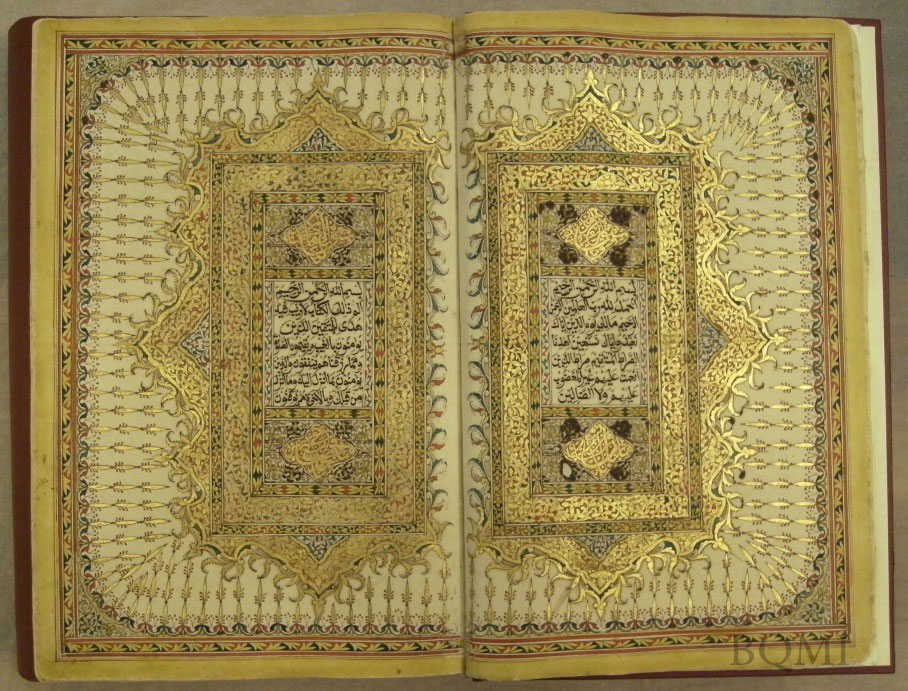 بسم الله الرحمن الرحيم
الحمد لله رب العالمين الرحمن
الرحيم مالك يوم الدين إياك
نعبد وإياك نستعين اهدنا
الصراط المستقيم صراط الذين
أنعمت عليهم غير المغضوب
عليهم ولا الضالين
بسم الله الرحمن الرحيم
الم ذلك الكتاب لا ريب فيه
هدى للمتقين الذين
يؤمنون بالغيب ويقيمون الصلاة
ومما رزقناهم ينفقون والذين
يؤمنون بما أنزل إليك وما أنزل
من قبلك وبالآخرة هم يوقنون
BQMI